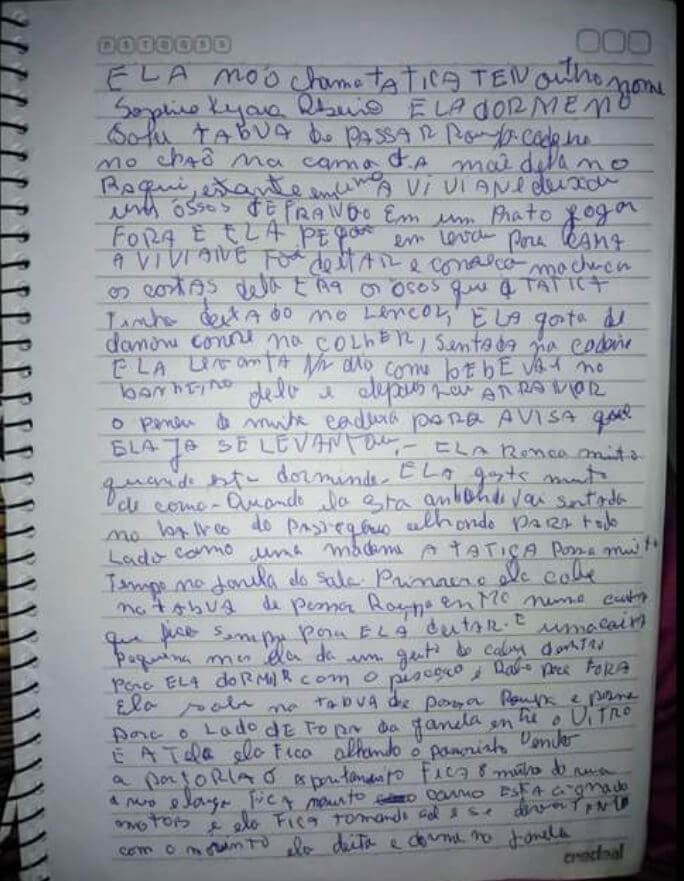 ELA NÃO chama TATICA TEM outro nome
ELA DORME NO
Sofa TABUA de PASSAR Roupa cadeira
no chão na cama DA mãe dela no
estante A VIVIANE deixou
um óssos dE FRANGO Em um Prato jogar
FORA E ELA PEgou em levou para CAMA
A VIVIANE Foi deitAR e começa machuca
os costas dela ERA os ósos que A TATICA
Tinha deitADO no LENCOL, ELA gosta de
danone come na COLHER, SENTADA na cadeira
ELA LEVANTA como bEBE VAI no
bANHEIRO dela e depois vai ARRANHAR
o paneu de minha cadeira PARA AVISA que
ELA JA SE LEVANTou, - ELA Ronca muito
quando esta dormindo - ELA gosta muito
de carro - Quando ela Esta andando vai sentada
no bANCO do PASSAgeiro olhando PARA todo
LAdo como uma madame A TATICA Passa muito
Tempo na janela da sala. Primeiro ela sobe
na TABUA de passar Roupa
que fica sempre para ELA deitAR. E uma caixa
Pequena mas ela da um geito de caber dentro
Para ELA doRMIR com o pescoço e Rabo para FORA
Ela sobe na TABUA de passar Roupa e
para o LAdo dE FORA da janela entre o VITRO
E A TElA ela Fica olhando o Vendo
a portARIA O apartamento FICA
a rua FICA carro ESTA
motor e ela FICA tomando sol e se
com o ela deita e dorme na janela
credeal